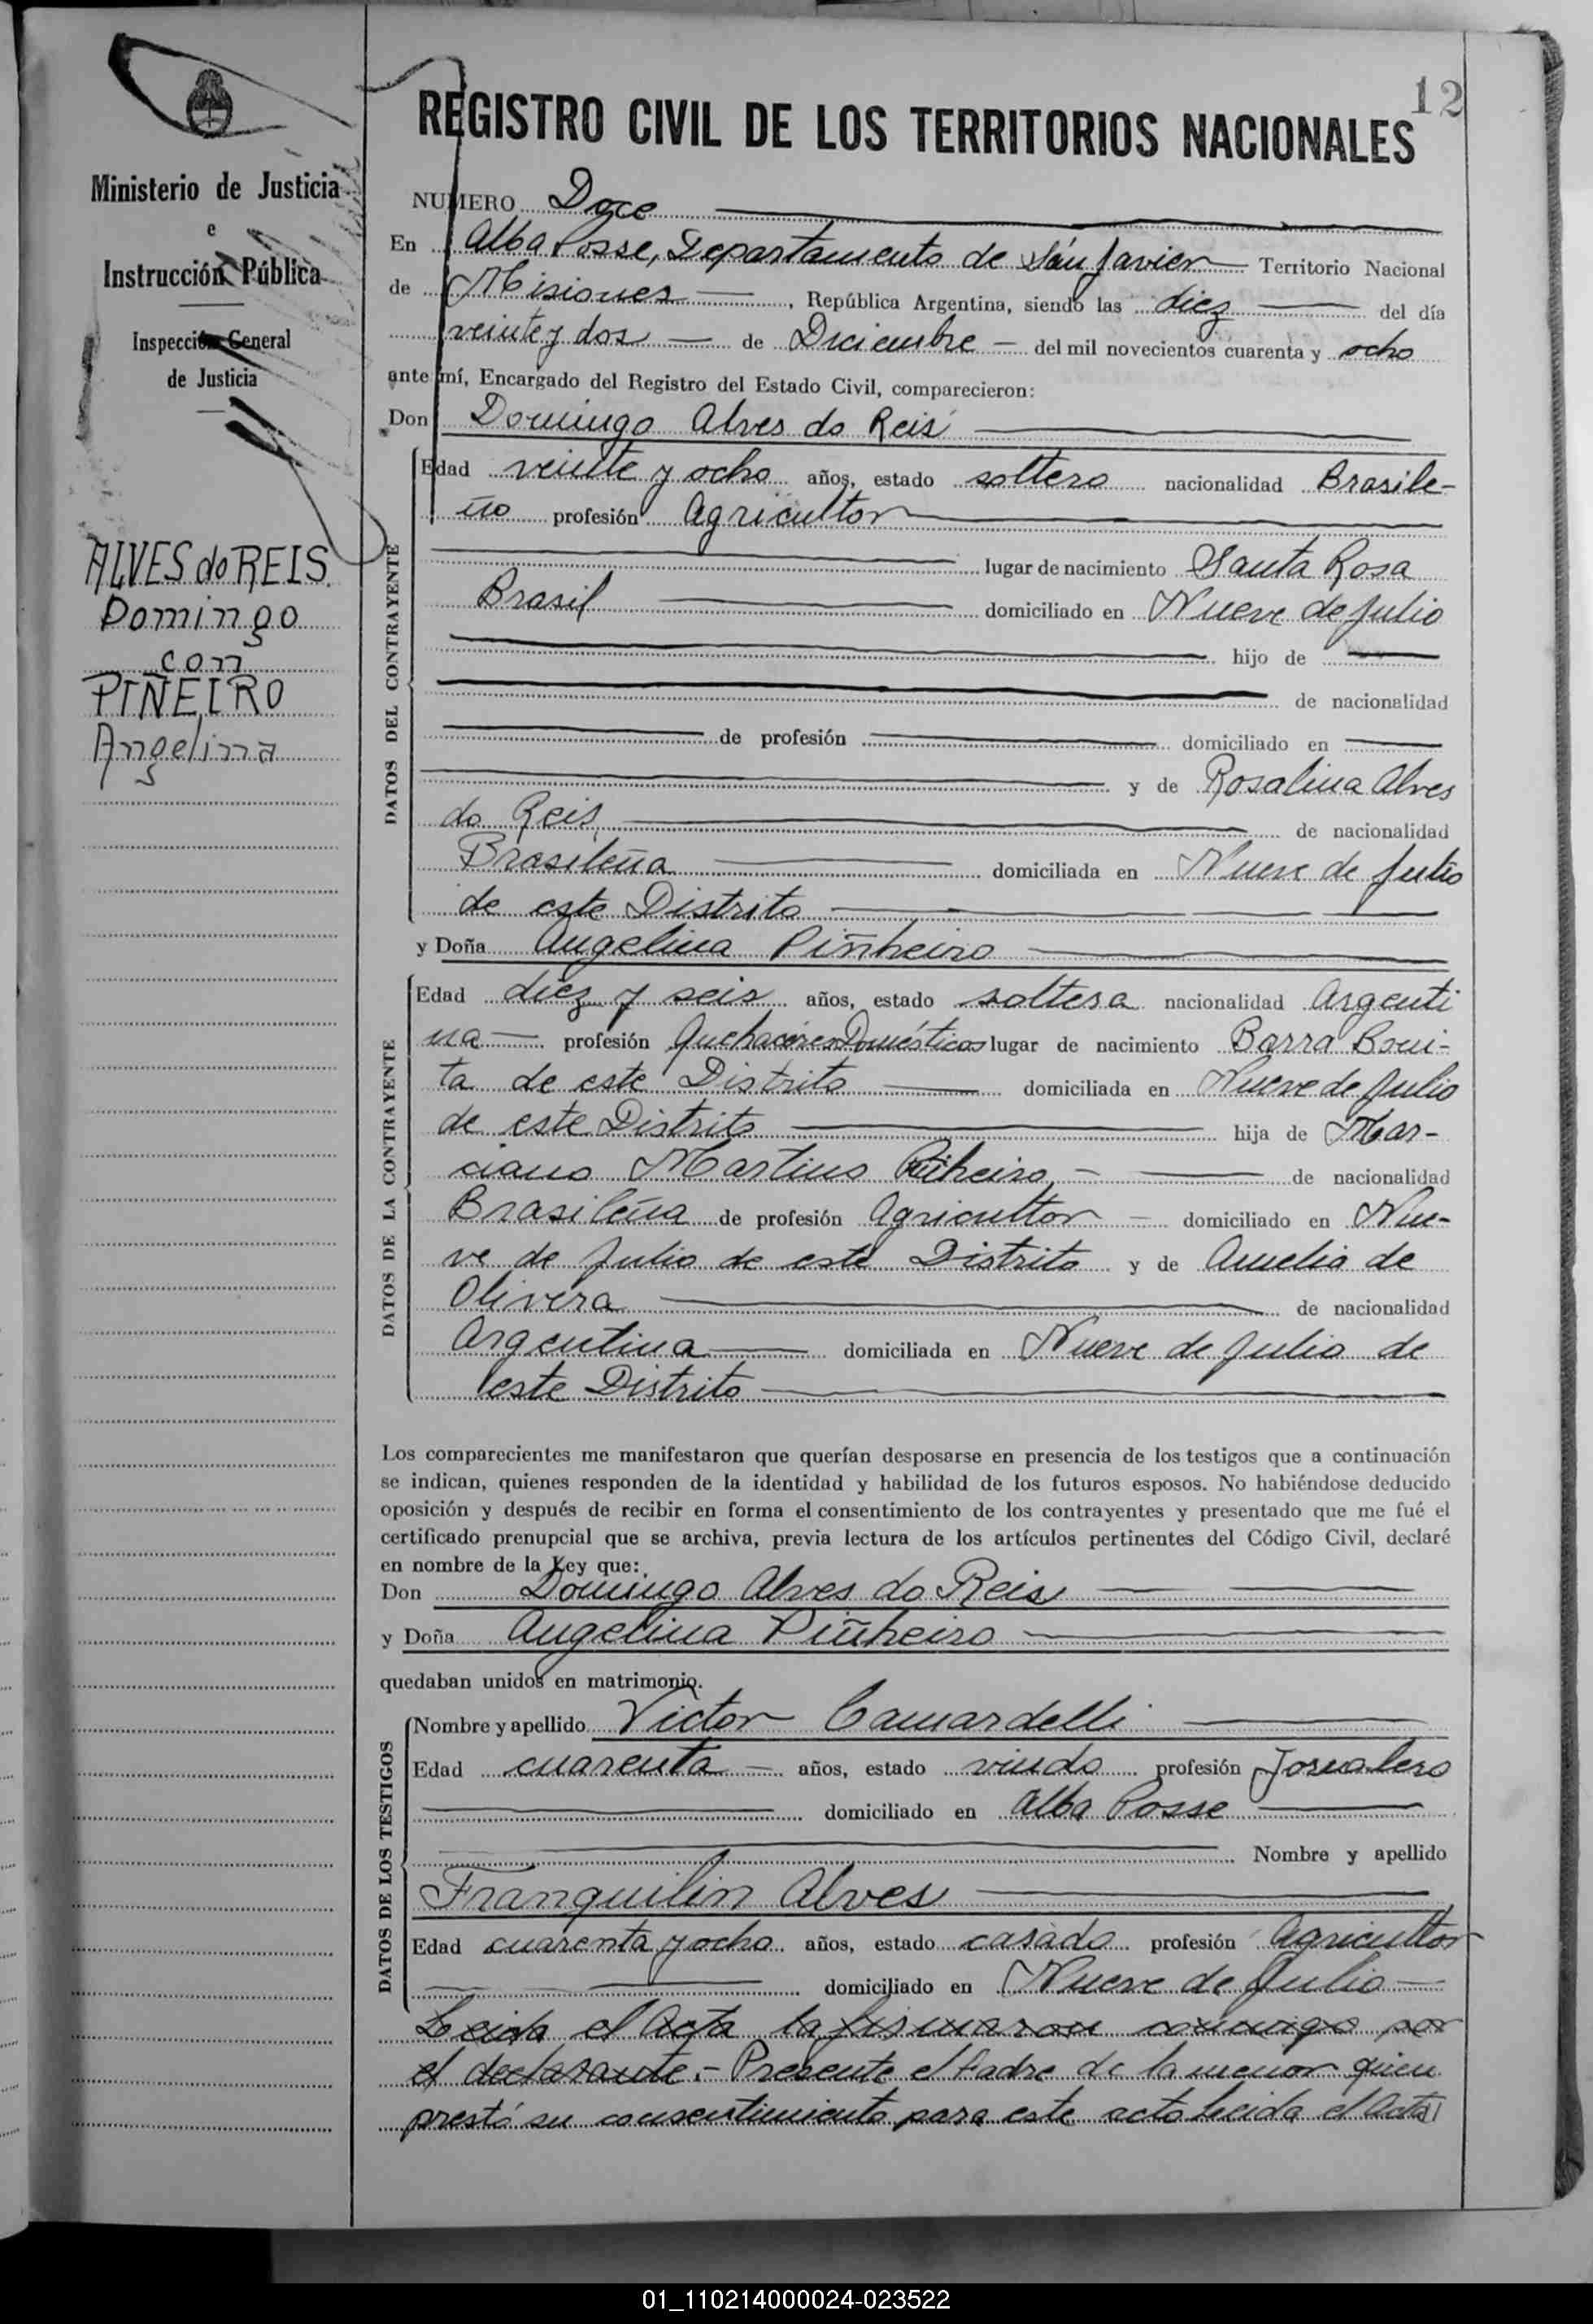 12
REGISTRO CIVIL DE LOS TERRITORIOS NACIONALES
Ministerio de Justicia
e
Instrucción Pública
Inspección General
de Justicia
ALVES do REIS.
Domingo
con
PIÑEIRO
Angelina
NUMERO Doce
En Alba Posse, Departamento de San Javier Territorio Nacional
de Misiones, República Argentina, siendo las diez del día
veinte y dos de Diciembre del mil novecientos cuarenta y ocho
ante mí, Encargado del Registro del Estado Civil, comparecieron:
Don Domingo Alves do Reis
DATOS DEL CONTRAYENTE
Edad veinte y ocho años, estado soltero nacionalidad Brasile-
ño profesión Agricultor
lugar de nacimiento Santa Rosa
Brasil domiciliado en Nueve de Julio
hijo de
de nacionalidad
de profesión domiciliado en
y de Rosalina Alves
do Reis, de nacionalidad
Brasileña domiciliada en Nueve de Julio
de este Distrito
y Doña Angelina Piñheiro
DATOS DE LA CONTRAYENTE
Edad diez y seis años, estado soltera nacionalidad Argenti
na profesión Quehaceres Domésticos lugar de nacimiento Barra Boni-
ta de este Distrito domiciliada en Nueve de Julio
de este Distrito hija de Mar-
ciano Martins Piñheiro, de nacionalidad
Brasileña de profesión Agricultor domiciliado en Nue-
ve de Julio de este Distrito y de Amelia de
Olivera de nacionalidad
Argentina domiciliada en Nueve de Julio de
este Distrito
Los comparecientes me manifestaron que querían desposarse en presencia de los testigos que a continuación
se indican, quienes responden de la identidad y habilidad de los futuros esposos. No habiéndose deducido
oposición y después de recibir en forma el consentimiento de los contrayentes y presentado que me fué el
certificado prenupcial que se archiva, previa lectura de los artículos pertinentes del Código Civil, declaré
en nombre de la Ley que:
Don Domingo Alves do Reis
y Doña Angelina Piñheiro
quedaban unidos en matrimonio.
DATOS DE LOS TESTIGOS
Nombre y apellido Victor Camardelli
Edad cuarenta años, estado viudo profesión Jornalero
domiciliado en Alba Posse
Nombre y apellido
Franquilin Alves
Edad cuarenta y ocho años, estado casado profesión Agricultor
domiciliado en Nueve de Julio
Leida el Acta la firmaron conmigo por
el declarante.- Presente el Padre de la menor quien
prestó su consentimiento para este acto leida el Acta
01_110214000024-023522